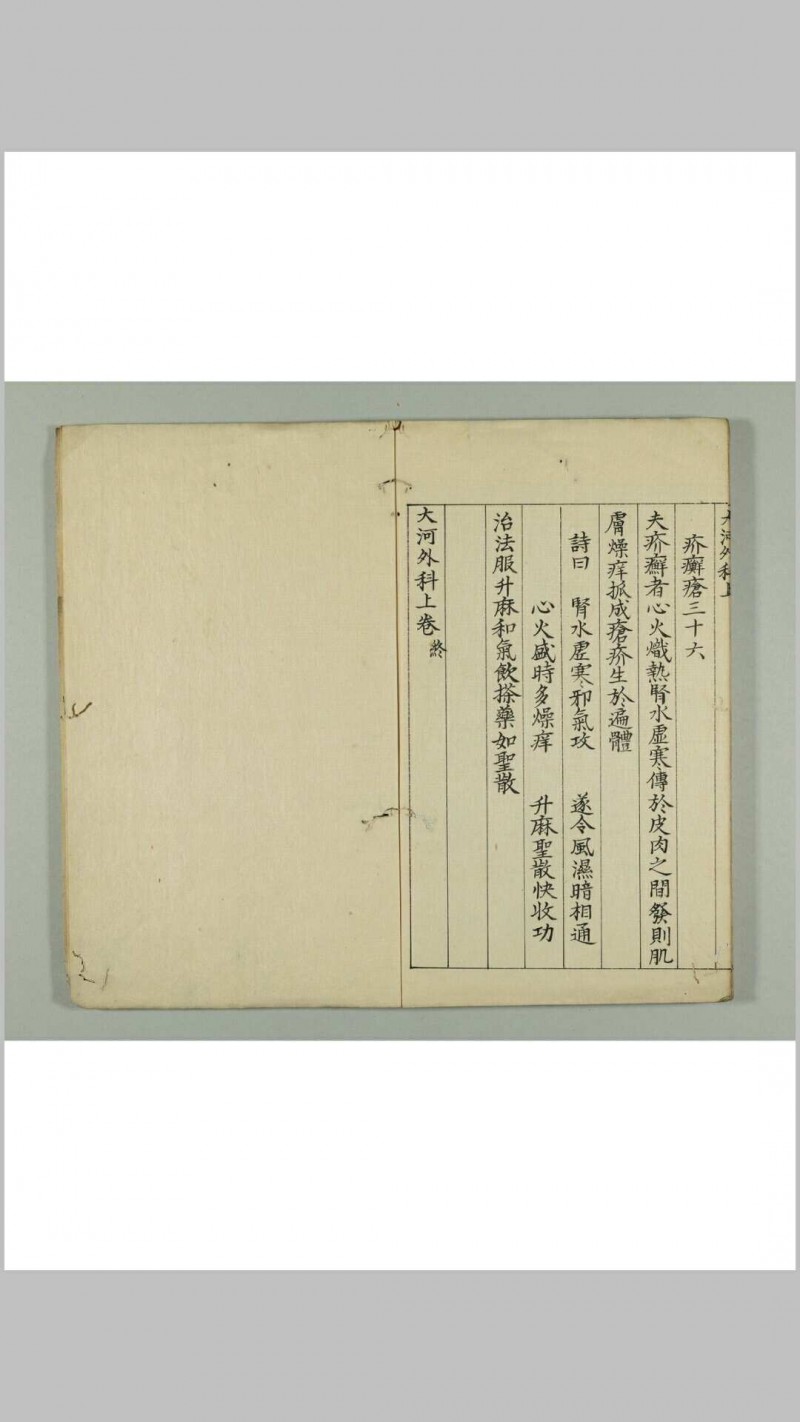 大河外科上
疥癬瘡三十六
夫疥癬者心火熾熱腎水虛寒傳於皮肉之間發則肌
膚燥痒抓成瘡疥生於遍體
詩曰　腎水虛寒邪氣攻　遂令風濕暗相通
心火盛時多燥痒　升麻聖散快收功
治法服升麻和氣飲搽藥如聖散
大河外科上卷 終